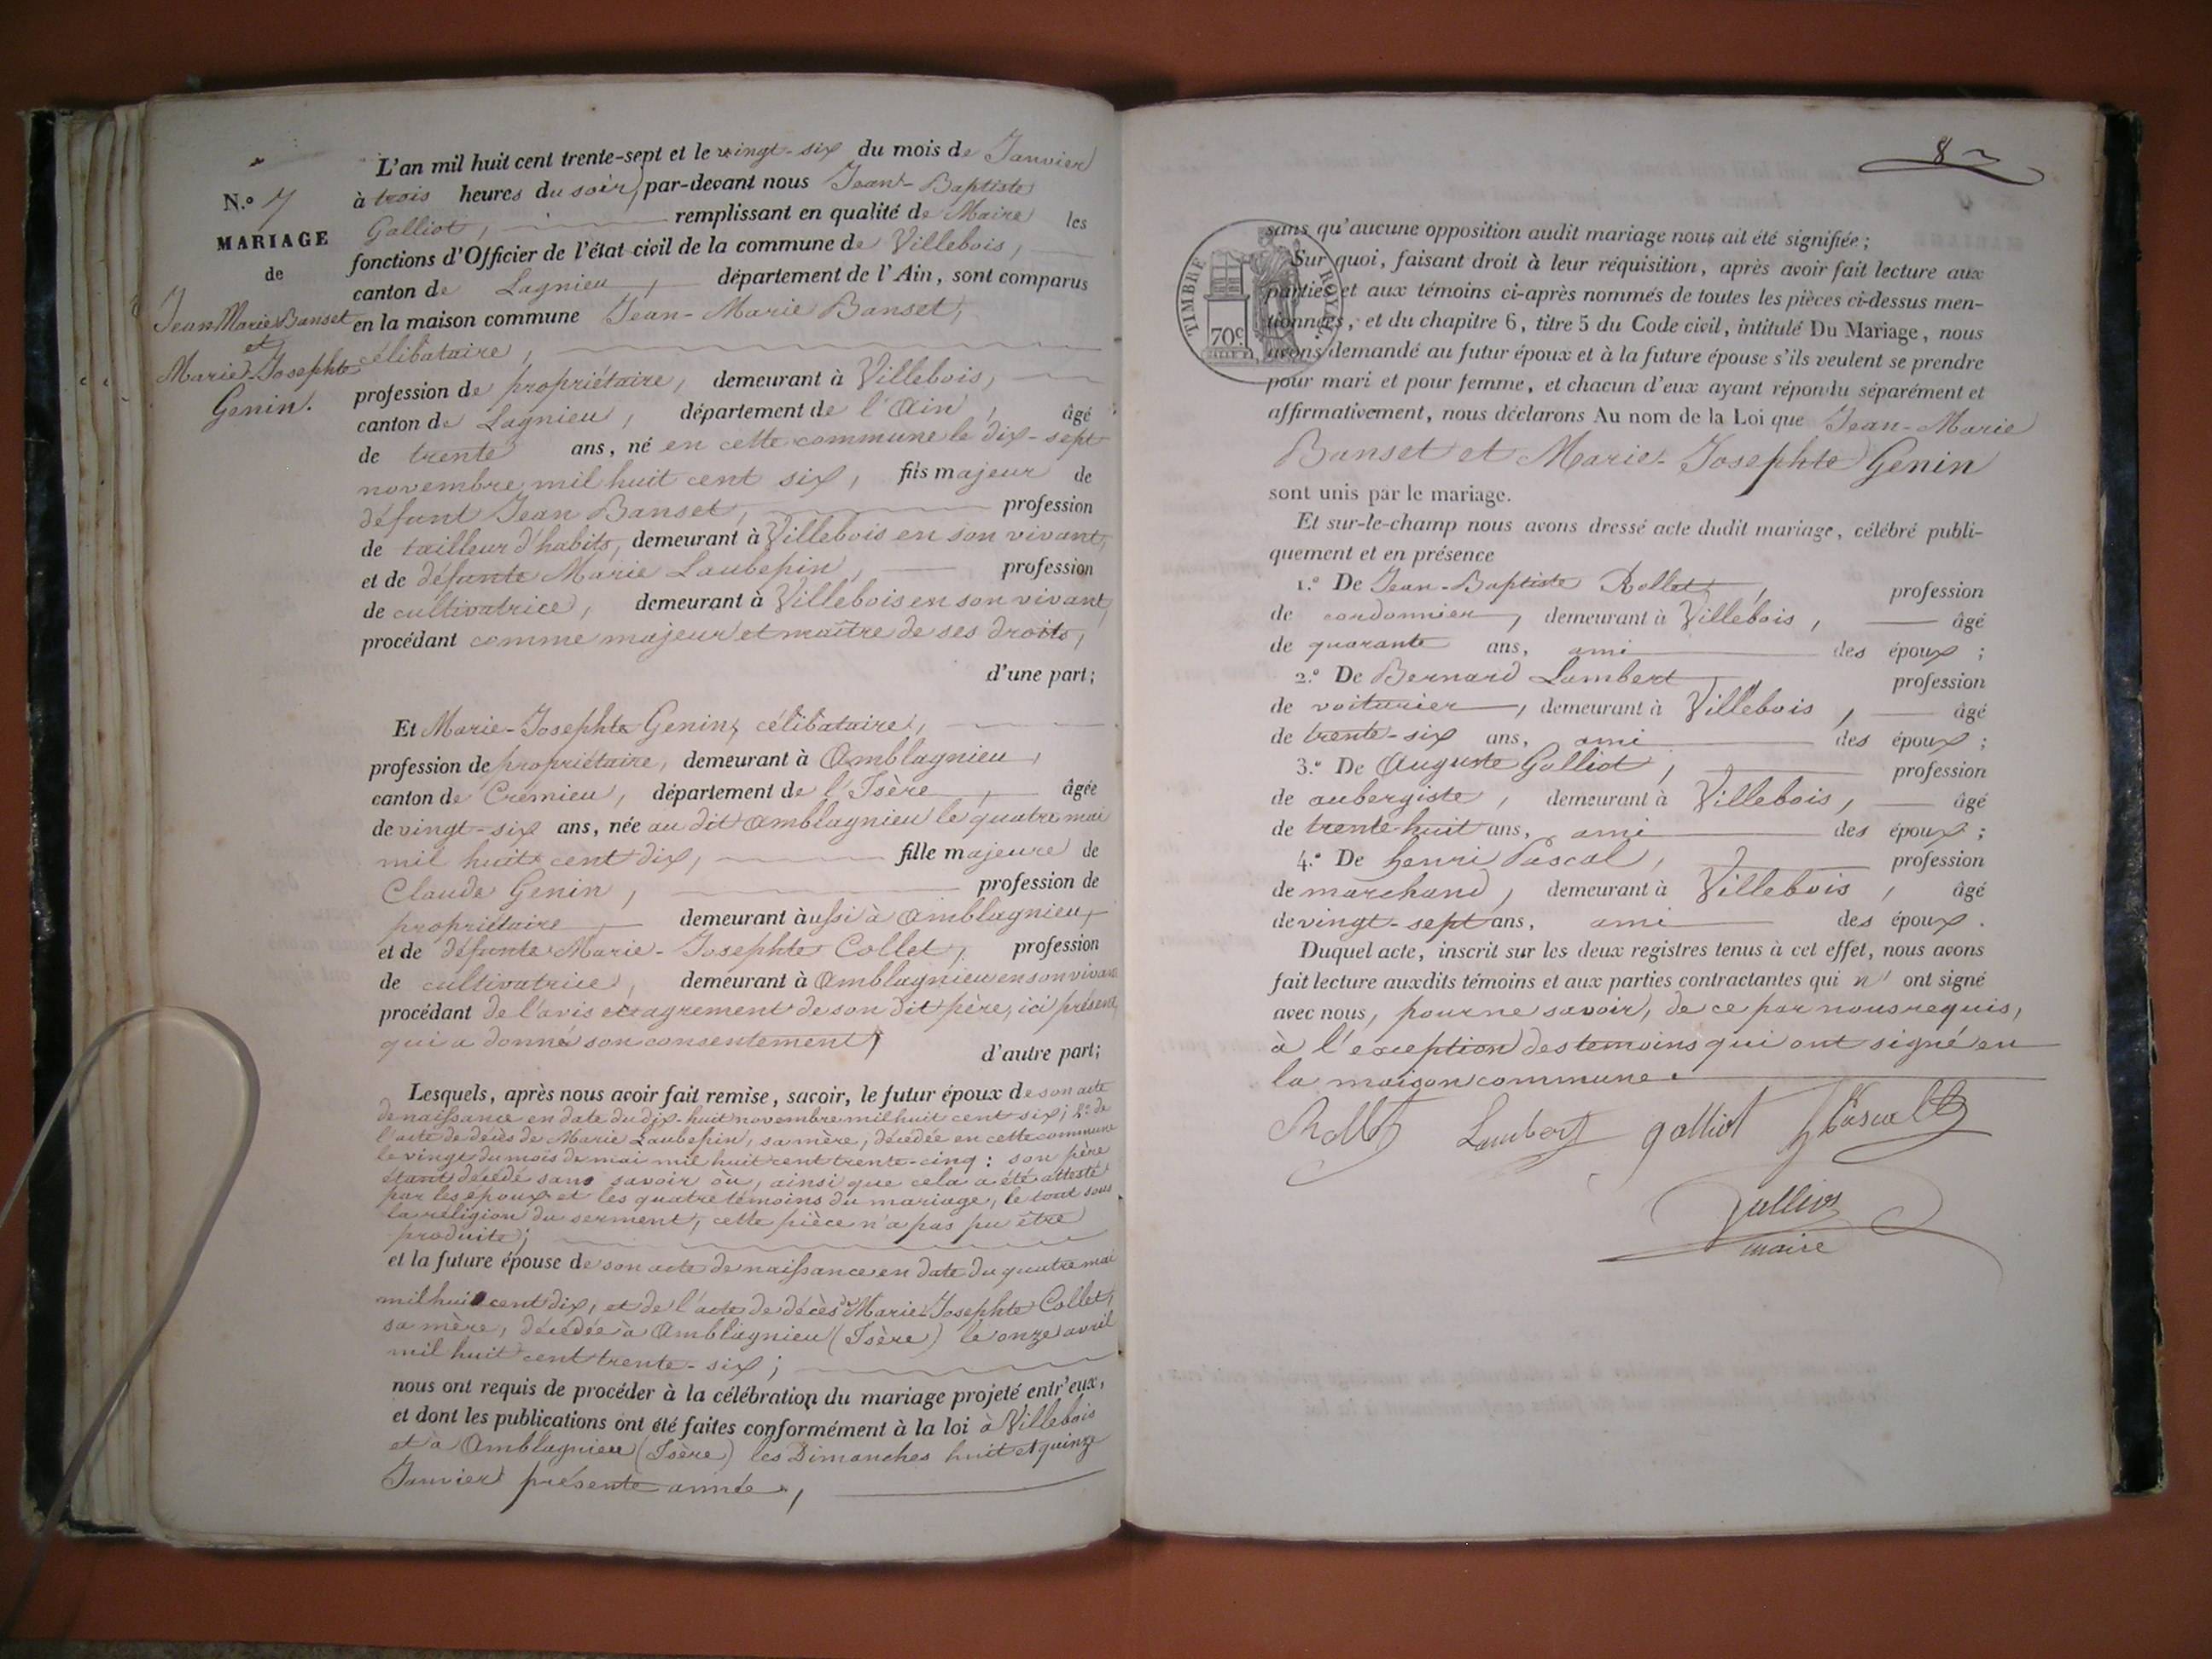 N.o 7
MARIAGE
de
Jean Marie Banset
et
Marie-Josephte
Genin.
L'an mil huit cent trente-sept et le vingt-six du mois de Janvier
à trois heures du soir, par-devant nous Jean-Baptiste
Galliot, remplissant en qualité de Maire les
fonctions d'Officier de l'état civil de la commune de Villebois,
canton de Lagnieu, département de l'Ain, sont comparus
en la maison commune Jean-Marie Banset,
célibataire,
profession de propriétaire, demeurant à Villebois,
canton de Lagnieu, département de l'Ain, âgé
de trente ans, né en cette commune le dix-sept
novembre mil huit cent six, fils majeur de
défunt Jean Banset, profession
de tailleur d'habits, demeurant à Villebois en son vivant,
et de défunte Marie Laubepin, profession
de cultivatrice, demeurant à Villebois en son vivant,
procédant comme majeur et maître de ses droits,
d'une part;
Et Marie-Josephte Genin, célibataire,
profession de propriétaire, demeurant à Amblagnieu,
canton de Cremieu, département de l'Isère, âgée
de vingt-six ans, née au dit Amblagnieu le quatre mai
mil huit cent dix, fille majeure de
Claude Genin, profession de
propriétaire demeurant aussi à Amblagnieu,
et de défunte Marie-Josephte Collet, profession
de cultivatrice, demeurant à Amblagnieu en son vivant
procédant de l'avis et agrement de son dit père, ici présent,
qui a donné son consentement,
d'autre part;
Lesquels, après nous avoir fait remise, savoir, le futur époux de son acte
de naissance en date du dix-huit novembre mil huit cent six; 2.o de
l'acte de décès de Marie Laubepin, sa mère, décédée en cette commune
le vingt du mois de mai mil huit cent trente-cinq: son père
étant décédé sans savoir où, ainsi que cela a été attesté
par les époux et les quatre témoins du mariage, le tout sous
la religion du serment, cette pièce n'a pas pu être
produite;
et la future épouse de son acte de naissance en date du quatre mai
mil huit cent dix, et de l'acte de décès de Marie-Josephte Collet,
sa mère, décédée à Amblagnieu (Isère) le onze avril
mil huit cent trente-six;
nous ont requis de procéder à la célébration du mariage projeté entr'eux,
et dont les publications ont été faites conformément à la loi à Villebois
et à Amblagnieu (Isère) les Dimanches huit et quinze
Janvier présente année,
8
TIMBRE ROYAL
70c
sans qu'aucune opposition audit mariage nous ait été signifiée;
Sur quoi, faisant droit à leur réquisition, après avoir fait lecture aux
parties et aux témoins ci-après nommés de toutes les pièces ci-dessus men-
tionnées, et du chapitre 6, titre 5 du Code civil, intitulé Du Mariage, nous
avons demandé au futur époux et à la future épouse s'ils veulent se prendre
pour mari et pour femme, et chacun d'eux ayant répondu séparément et
affirmativement, nous déclarons Au nom de la Loi que Jean-Marie
Banset et Marie-Josephte Genin
sont unis par le mariage.
Et sur-le-champ nous avons dressé acte dudit mariage, célébré publi-
quement et en présence
1.o De Jean-Baptiste Rollet, profession
de cordonnier, demeurant à Villebois, âgé
de quarante ans, ami des époux;
2.o De Bernard Lambert profession
de voiturier, demeurant à Villebois, âgé
de trente-six ans, ami des époux;
3.o De Auguste Galliot, profession
de aubergiste, demeurant à Villebois, âgé
de trente-huit ans, ami des époux;
4.o De henri Pascal, profession
de marchand, demeurant à Villebois, âgé
de vingt-sept ans, ami des époux.
Duquel acte, inscrit sur les deux registres tenus à cet effet, nous avons
fait lecture auxdits témoins et aux parties contractantes qui n' ont signé
avec nous, pour ne savoir, de ce par nous requis,
à l'exception des temoins qui ont signé en
la maison commune.
Rollet Lambert galliot h Pascal
Galliot
maire